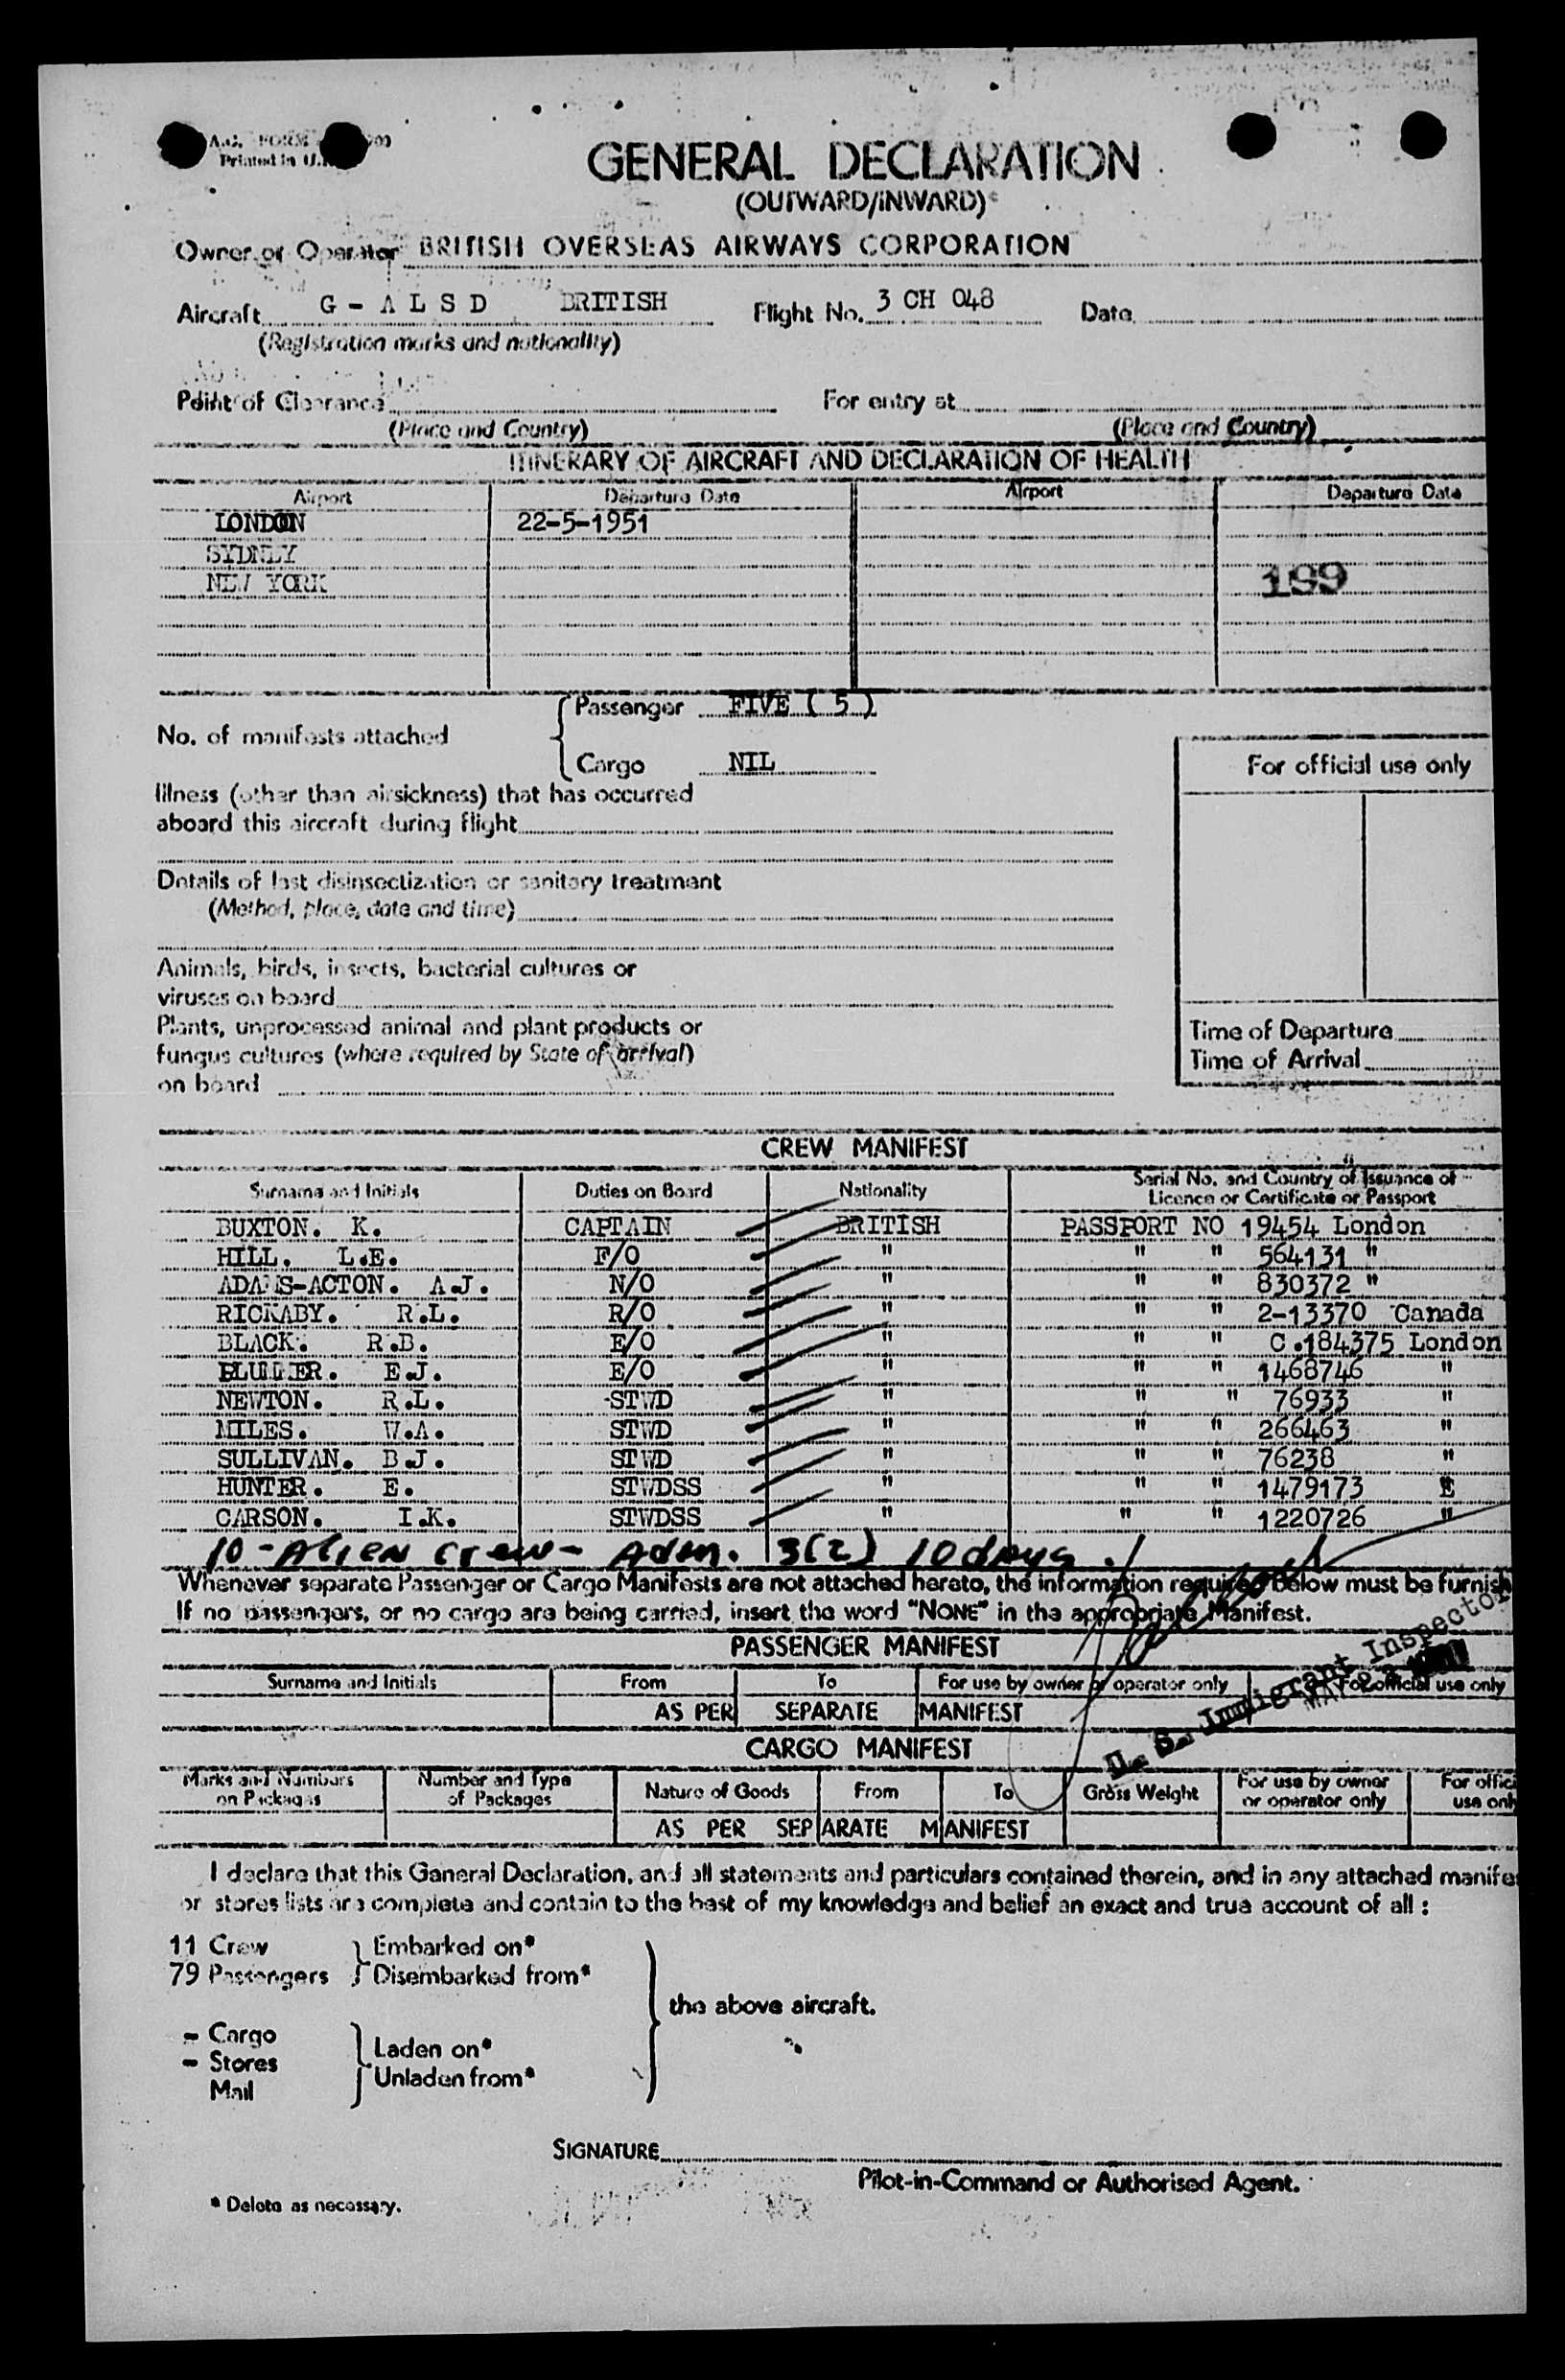 A.C. FORM
Printed in U.K.
GENERAL DECLARATION
(OUTWARD/INWARD)*
Owner or Operator BRITISH OVERSEAS AIRWAYS CORPORATION
Aircraft G - A L S D BRITISH Flight No. 3 CH 048 Date
(Registration marks and nationality)
Point of Clearance For entry at
(Place and Country) (Place and Country)
ITINERARY OF AIRCRAFT AND DECLARATION OF HEALTH
Airport Departure Date Airport Departure Date
LONDON 22-5-1951
SYDNEY
NEW YORK 199
No. of manifests attached
Passenger FIVE ( 5 )
Cargo NIL
For official use only
Illness (other than airsickness) that has occurred
aboard this aircraft during flight
Details of last disinsectization or sanitary treatment
(Method, place, date and time)
Animals, birds, insects, bacterial cultures or
viruses on board
Plants, unprocessed animal and plant products or
fungus cultures (where required by State of arrival)
on board
Time of Departure
Time of Arrival
CREW MANIFEST
Surname and Initials Duties on Board Nationality Serial No. and Country of Issuance of
Licence or Certificate or Passport
BUXTON. K. CAPTAIN BRITISH PASSPORT NO 19454 London
HILL. L.E. F/O " " " 564131 "
ADAMS-ACTON. A.J. N/O " " " 830372 "
RICKABY. R.L. R/O " " " 2-13370 Canada
BLACK. R.B. E/O " " " C.184375 London
E.J. E/O " " " 1468746 "
NEWTON. R.L. STWD " " " 76933 "
MILES. W.A. STWD " " " 266463 "
SULLIVAN. B.J. STWD " " " 76238 "
HUNTER. E. STWDSS " " " 1479173 "
CARSON. I.K. STWDSS " " " 1220726 "
10 - Alien crew - Adm. 3(2) 10 days.
Whenever separate Passenger or Cargo Manifests are not attached hereto, the information required below must be furnish
If no passengers, or no cargo are being carried, insert the word "NONE" in the appropriate Manifest.
PASSENGER MANIFEST
Surname and Initials From To For use by owner or operator only For official use only
AS PER SEPARATE MANIFEST
U. S. Immigrant Inspector
CARGO MANIFEST
Marks and Numbers on Packages Number and Type of Packages Nature of Goods From To Gross Weight For use by owner or operator only For offici use only
AS PER SEPARATE MANIFEST
I declare that this General Declaration, and all statements and particulars contained therein, and in any attached manifes
or stores lists are complete and contain to the best of my knowledge and belief an exact and true account of all :
11 Crew Embarked on*
79 Passengers Disembarked from*
the above aircraft.
- Cargo Laden on*
- Stores Unladen from*
Mail
SIGNATURE
Pilot-in-Command or Authorised Agent.
* Delete as necessary.